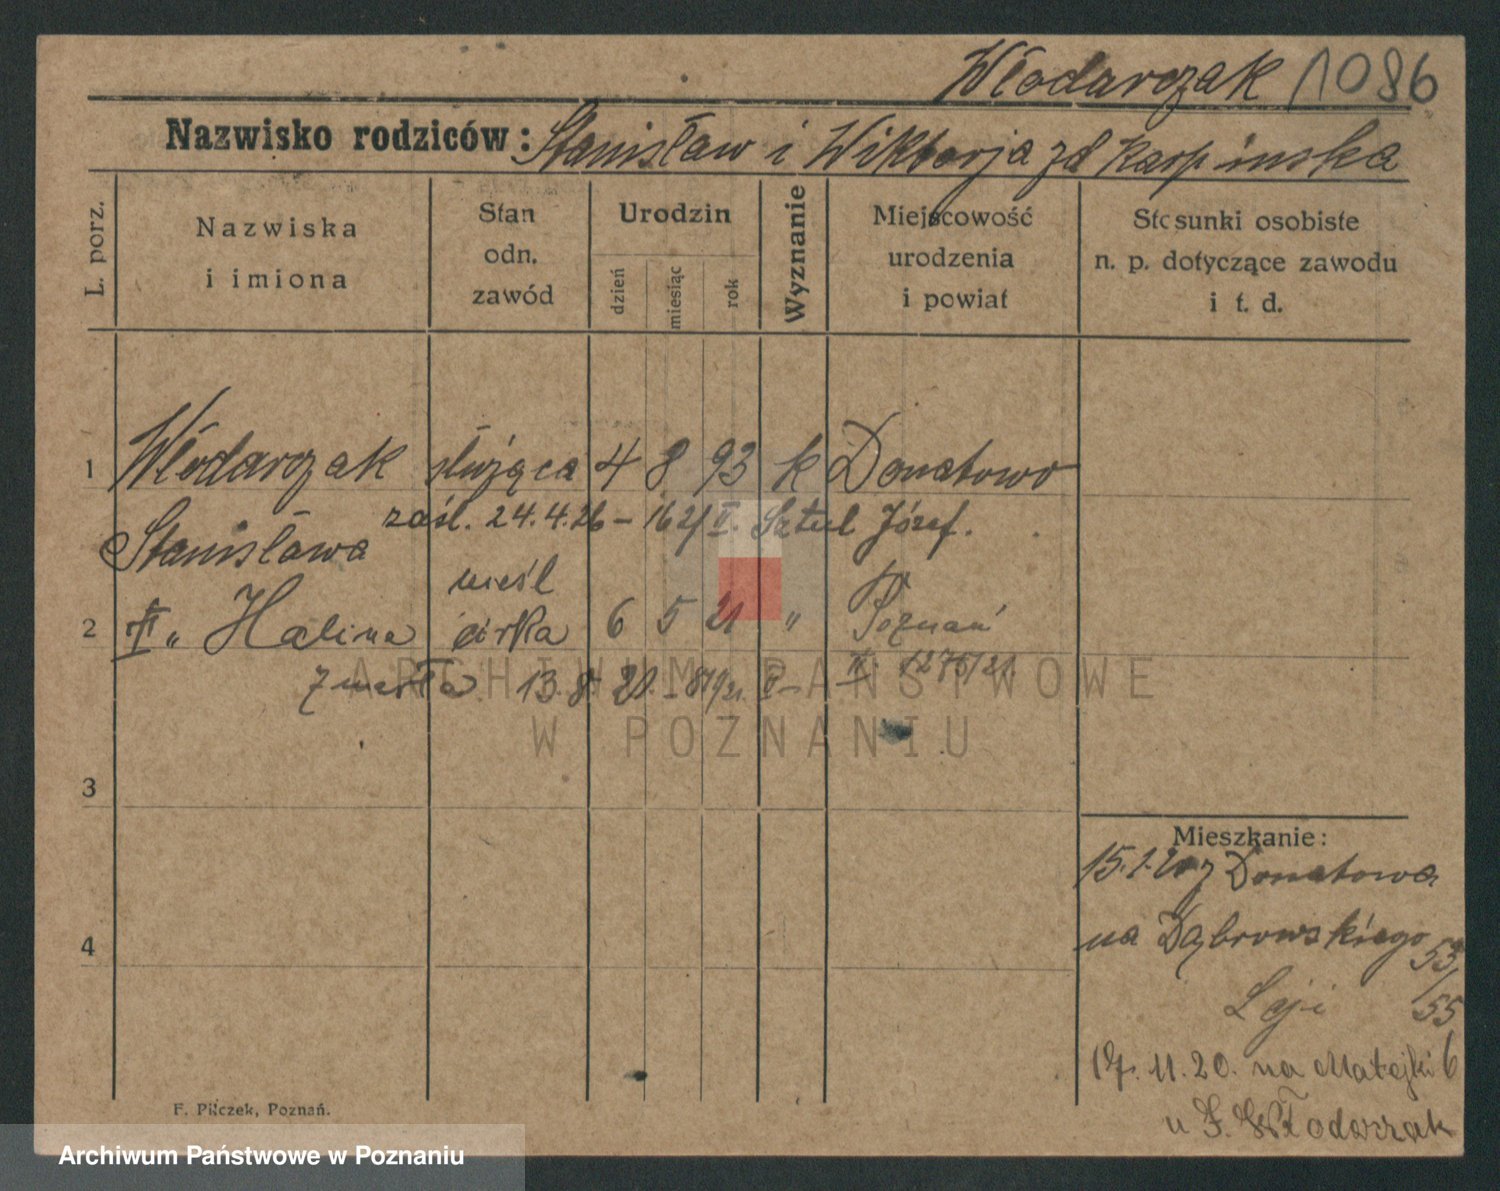 Włodarczak 1086
Nazwisko rodziców: Stanisław i Wiktorja zd Karpinska
L. porz.
Nazwiska
i imiona
Stan
odn.
zawód
Urodzin
dzień
miesiąc
rok
Wyznanie
Miejscowość
urodzenia
i powiat
Stosunki osobiste
n. p. dotyczące zawodu
i t. d.
1 Włodarczak służąca 4 8 93 k Donatowo
zaśl. 24.4.26 – 1621 II. Sztul Józef.
Stanisława
nieśl
2 " Halina córka 6 5 21 " Poznań
zmarła 13. 8 21. II 1276/21.
3
4
Mieszkanie:
15.1.20 z Donatowa
na Dąbrowskiego 53/
55
17. 11. 20. na Matejki 6
u F. Włodarczak
F. Pilczek, Poznań.
ARCHIWUM PAŃSTWOWE
W POZNANIU
Archiwum Państwowe w Poznaniu